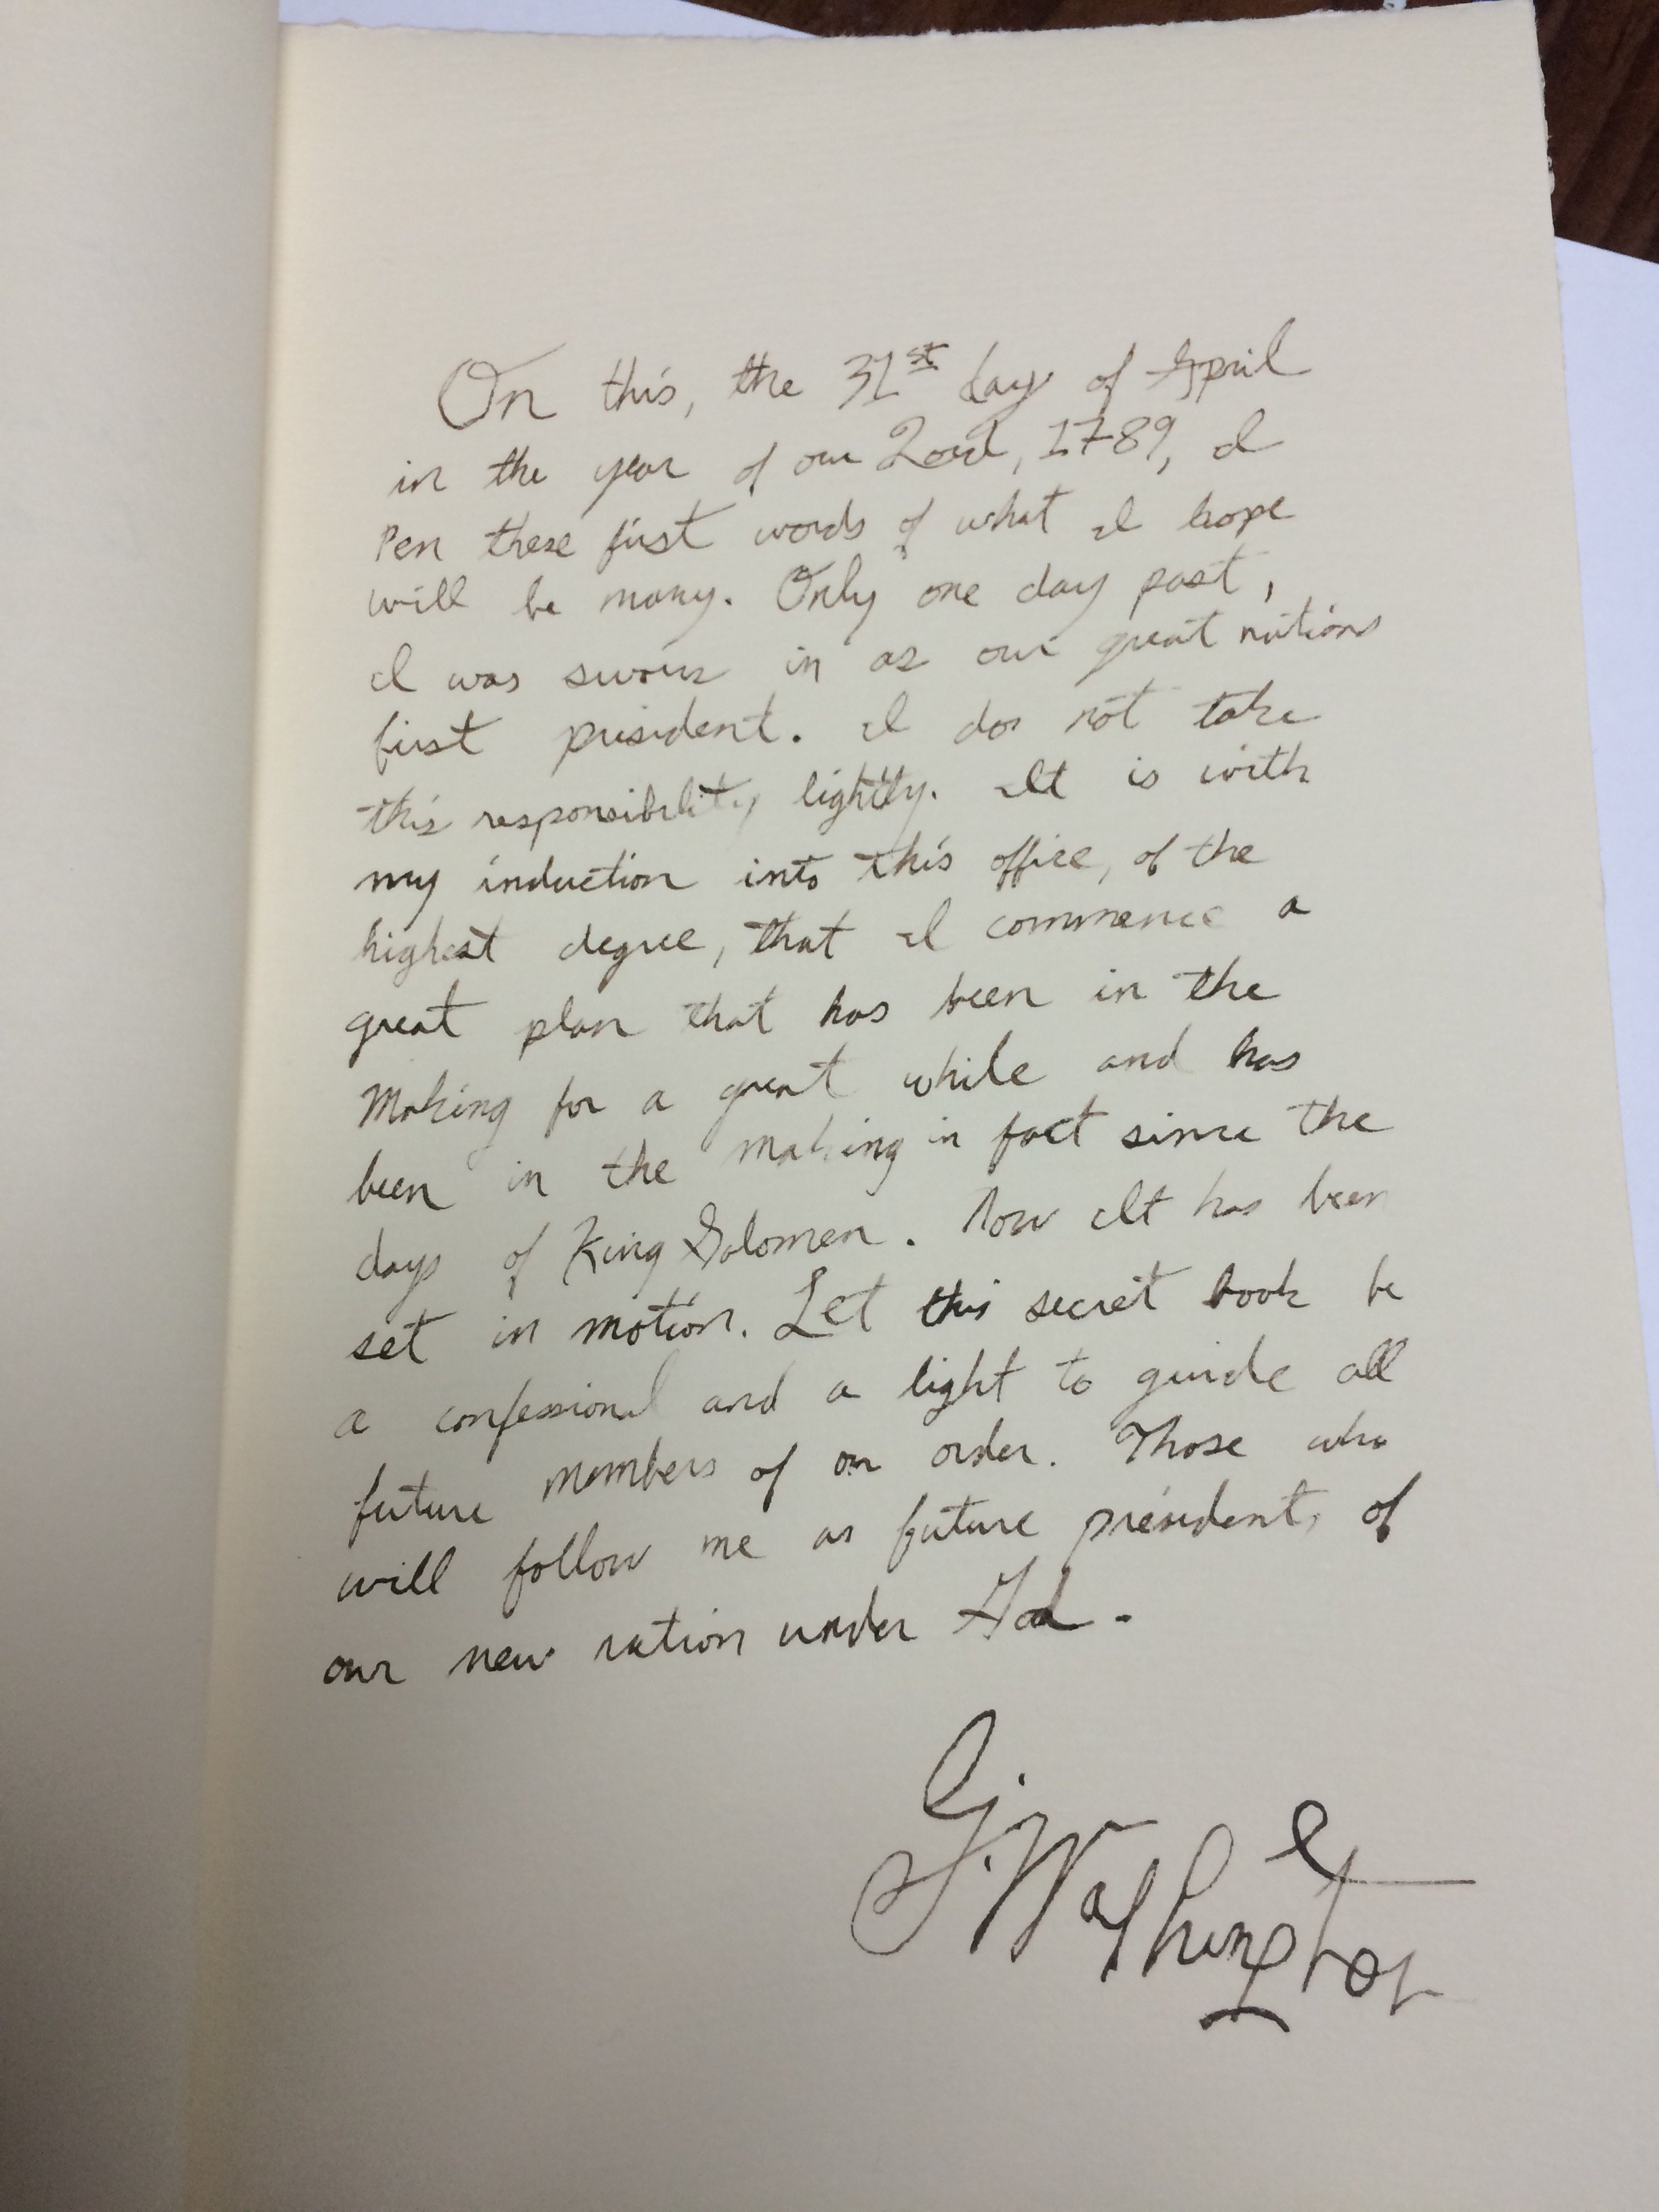 On this, the 31st day of April
in the year of our Lord, 1789, I
Pen these first words of what I hope
will be many. Only one day past,
I was sworn in as our great nations
first president. I do not take
this responsibility lightly. It is with
my induction into this office, of the
highest degree, that I commence a
great plan that has been in the
Making for a great while and has
been in the making in fact since the
days of King Solomen. Now It has been
set in motion. Let this secret book be
a confessional and a light to guide all
future members of our order. Those who
will follow me as future presidents of
our new nation under God.
G. Washington